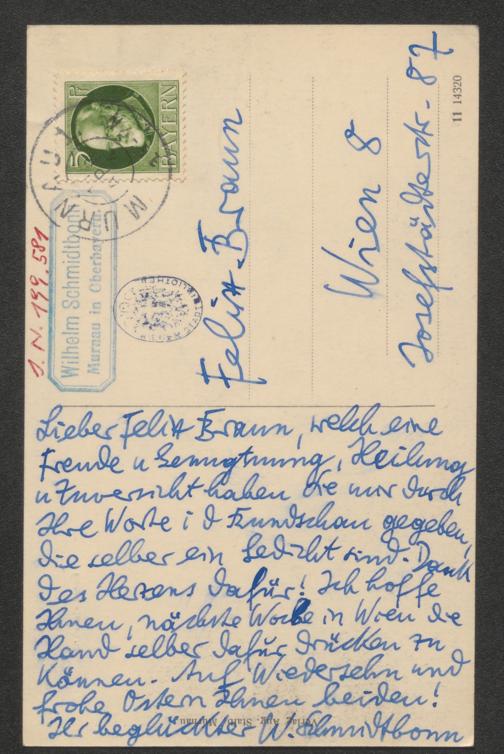 5 PF
BAYERN
MURNAU
Wilhelm Schmidtbonn
Murnau in Oberbayern
I. N. 199.581
Felix Braun
Wien 8
Josefstädterstr. 87
11 14320
Lieber Felix Braun, welch eine
Freude u Genugtuung, Heilung
u Zuversicht haben Sie mir durch
Ihre Worte i d Rundschau gegeben,
die selber ein Gedicht sind. Dank
des Herzens dafür! Ich hoffe
Ihnen, nächste Woche in Wien die
Hand selber dafür drücken zu
können. Auf Wiedersehn und
frohe Ostern Ihnen beiden!
Ihr beglückter W. Schmidtbonn
Verlag Aug. Murnau